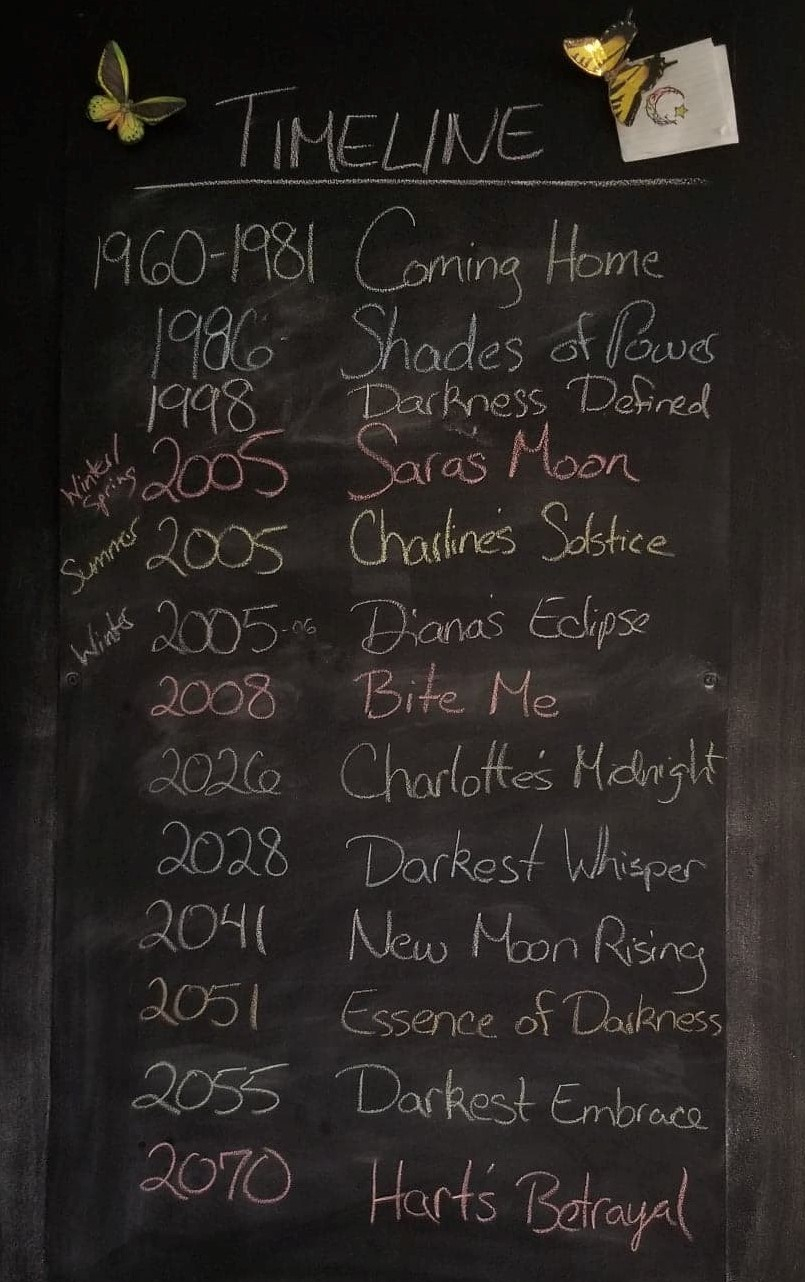 TIMELINE
1960-1981 Coming Home
1986 Shades of Power
1998 Darkness Defined
Winter/Spring 2005 Sara's Moon
Summer 2005 Charline's Solstice
Winter 2005-06 Diana's Eclipse
2008 Bite Me
2026 Charlotte's Midnight
2028 Darkest Whisper
2041 New Moon Rising
2051 Essence of Darkness
2055 Darkest Embrace
2070 Hart's Betrayal